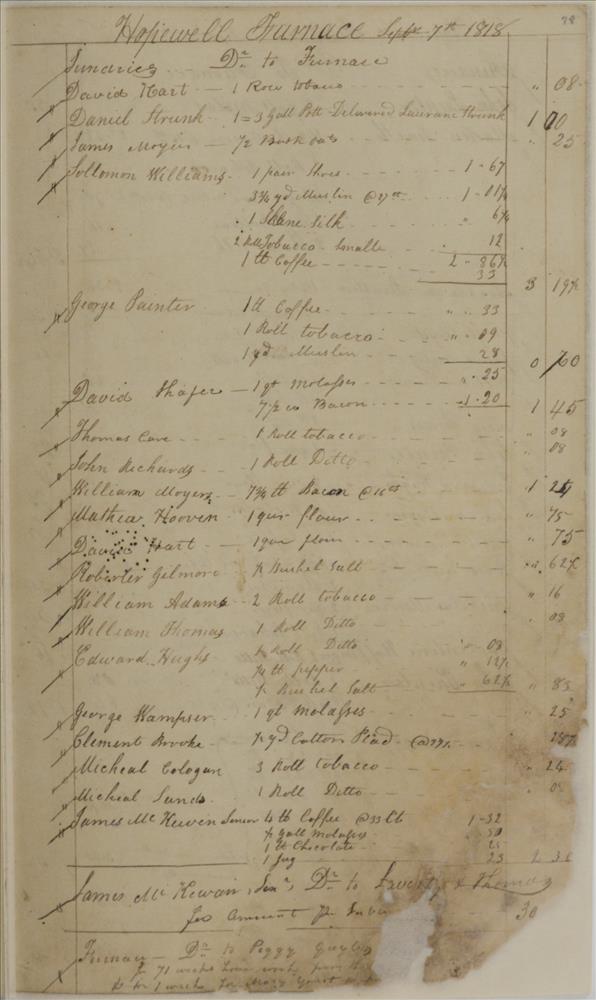 78
Hopewell Furnace Septr 7th 1818
Sundries Dr to Furnace
David Hart - 1 Row tobaco " 08
Daniel Strunk - 1 = 3 Gall Pott Delivered Laurance Strunk 1 00
James Moyer - 1/2 Bush oats " 25
Sollomon Williams - 1 pair Shoes 1-67
3 3/4 yd Muslin @ 27 cts 1-01 1/4
1 Skane Silk 6 1/4
2 Roll Tobacco Smalle 12
2-86 1/2
1 lb Coffee 33
3 19 1/2
George Painter 1 lb Coffee " 33
1 Roll tobacco " 09
1 yd Muslin 28
0 70
David Shafer - 1 qt Molasses " 25
7 1/2 lb Bacon 1.20
1 45
Thomas Care 1 Roll tobacco " 08
John Richards 1 Roll Ditto " 08
William Moyer - 7 3/4 lb Bacon @ 16 cts 1 24
Mathew Hooven 1 qur flour " 75
David Hart - 1 qur flour " 75
Gilmore 1/2 Bushel Salt " 62 1/2
William Adams - 2 Roll tobacco " 16
William Thomas 1 Roll Ditto " 08
Edward Hughs 1 Roll Ditto " 08
1/4 lb pepper " 12 1/2
1/2 Bushel Salt " 62 1/2
" 83
George Kampser 1 qt Molasses " 25
Clement Brooke 1/2 yd Cotton Plad
Micheal Cologan 3 Roll tobacco " 24
Micheal Sands 1 Roll Ditto " 08
James McKewen Senior 4 lb Coffee @ 33 Ct 1-32
1/2 gall Molasses 50
1 lb Chocolate 25
1 Jug 25
2 3
James McKewan, Senr, Dr to & Thomas
for Amount 30
Furnace - Dr to Peggy
for